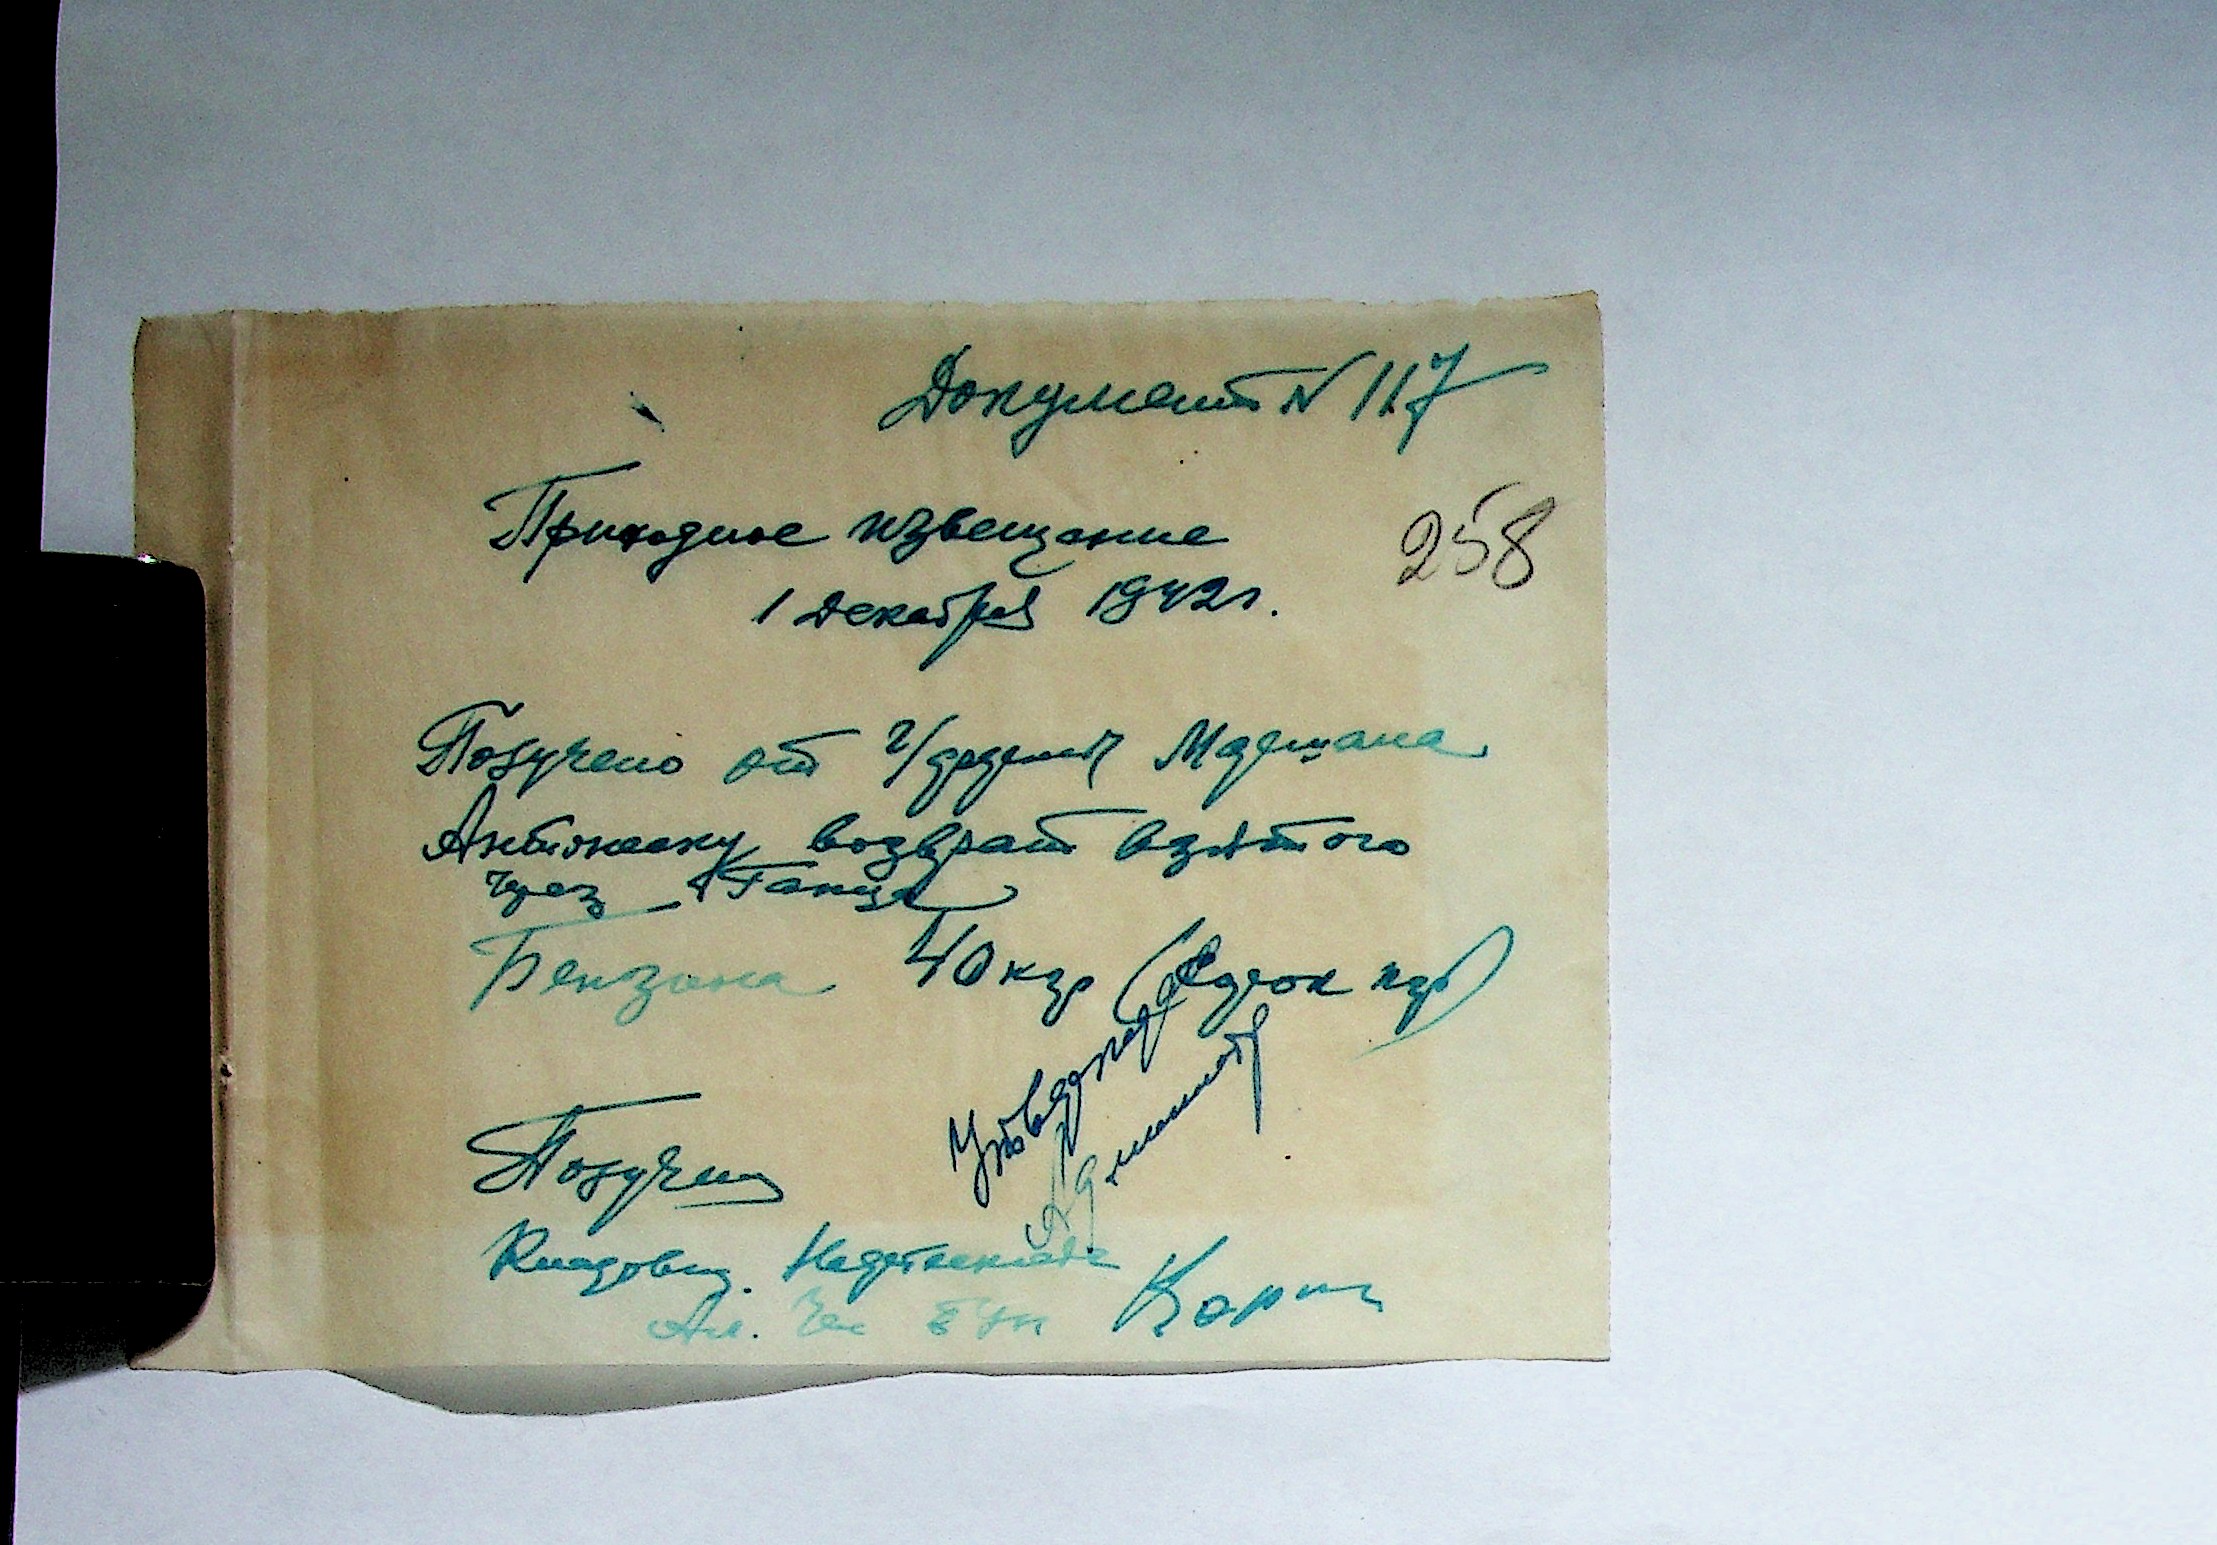 Документ N 117
Приходное извещание
258
1 декабря 1942 г.
Получено от Маршала
Антонеску возврат взятого
через Ганца
Бензина 40 кгр (Сорок кгр)
Утверждаю
Администр
Получил
Кладовщ.
Ал.